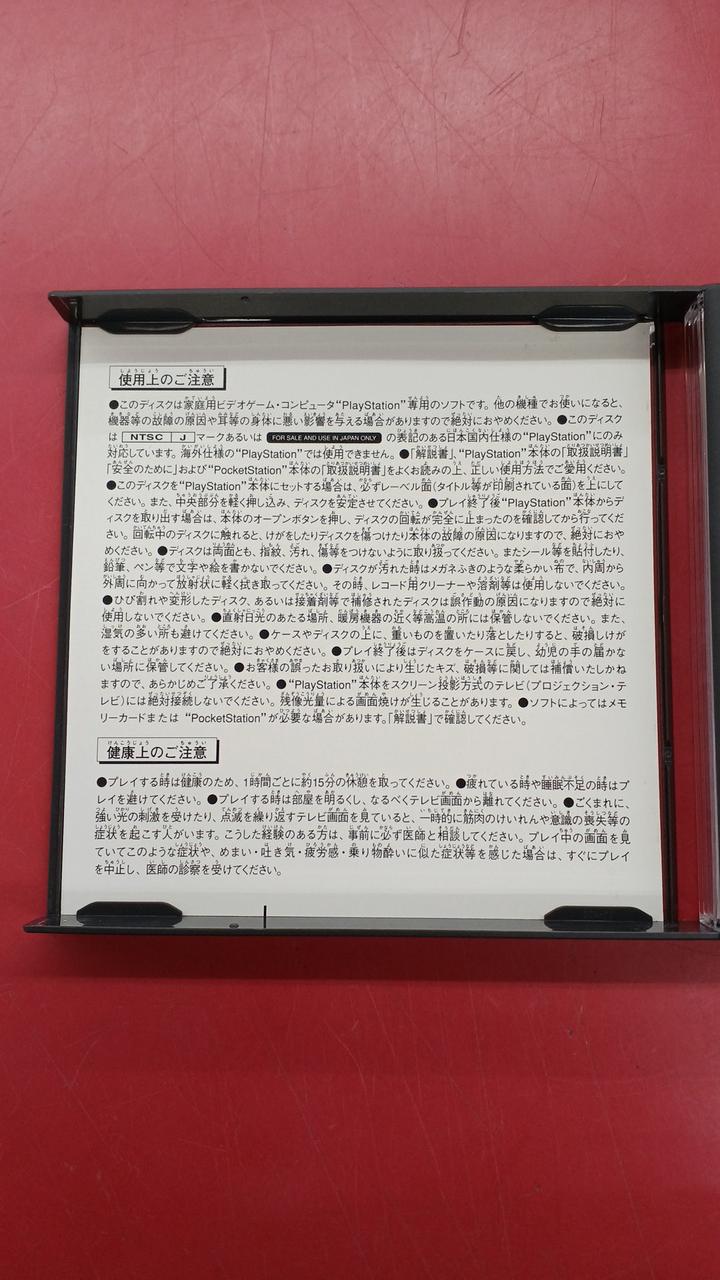 使用上のご注意
●このディスクは家庭用ビデオゲーム・コンピュータ“PlayStation”専用のソフトです。他の機種でお使いになると、
機器等の故障の原因や耳等の身体に悪い影響を与える場合がありますので絶対におやめください。●このディスク
は NTSC J マークあるいは FOR SALE AND USE IN JAPAN ONLY の表記のある日本国内仕様の“PlayStation”にのみ
対応しています。海外仕様の“PlayStation”では使用できません。●「解説書」、“PlayStation”本体の「取扱説明書」
「安全のために」および“PocketStation”本体の「取扱説明書」をよくお読みの上、正しい使用方法でご愛用ください。
●このディスクを“PlayStation”本体にセットする場合は、必ずレーベル面(タイトル等が印刷されている面)を上にして
ください。また、中央部分を軽く押し込み、ディスクを安定させてください。●プレイ終了後“PlayStation”本体からデ
ィスクを取り出す場合は、本体のオープンボタンを押し、ディスクの回転が完全に止まったのを確認してから行ってくだ
さい。回転中のディスクに触れると、けがをしたりディスクを傷つけたり本体の故障の原因になりますので、絶対におや
めください。●ディスクは両面とも、指紋、汚れ、傷等をつけないように取り扱ってください。またシール等を貼付したり、
鉛筆、ペン等で文字や絵を書かないでください。●ディスクが汚れた時はメガネふきのような柔らかい布で、内周から
外周に向かって放射状に軽く拭き取ってください。その時、レコード用クリーナーや溶剤等は使用しないでください。
●ひび割れや変形したディスク、あるいは接着剤等で補修されたディスクは誤作動の原因になりますので絶対に
使用しないでください。●直射日光のあたる場所、暖房機器の近く等高温の所には保管しないでください。また、
湿気の多い所も避けてください。●ケースやディスクの上に、重いものを置いたり落としたりすると、破損しけが
をすることがありますので絶対におやめください。●プレイ終了後はディスクをケースに戻し、幼児の手の届かな
い場所に保管してください。●お客様の誤ったお取り扱いにより生じたキズ、破損等に関しては補償いたしかね
ますので、あらかじめご了承ください。●“PlayStation”本体をスクリーン投影方式のテレビ(プロジェクション・テ
レビ)には絶対接続しないでください。残像光量による画面焼けが生じることがあります。●ソフトによってはメモ
リーカードまたは“PocketStation”が必要な場合があります。「解説書」で確認してください。
健康上のご注意
●プレイする時は健康のため、1時間ごとに約15分の休憩を取ってください。●疲れている時や睡眠不足の時はプ
レイを避けてください。●プレイする時は部屋を明るくし、なるべくテレビ画面から離れてください。●ごくまれに、
強い光の刺激を受けたり、点滅を繰り返すテレビ画面を見ていると、一時的に筋肉のけいれんや意識の喪失等の
症状を起こす人がいます。こうした経験のある方は、事前に必ず医師と相談してください。プレイ中の画面を見
ていてこのような症状や、めまい・吐き気・疲労感・乗り物酔いに似た症状等を感じた場合は、すぐにプレイ
を中止し、医師の診察を受けてください。